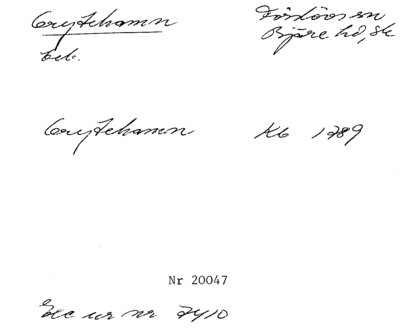 Grytehamn Förslöv sn
Bjäre hd, Sk
beb.
Grytehamn Kb 1789
Nr 20047
Exc ur nr 7410